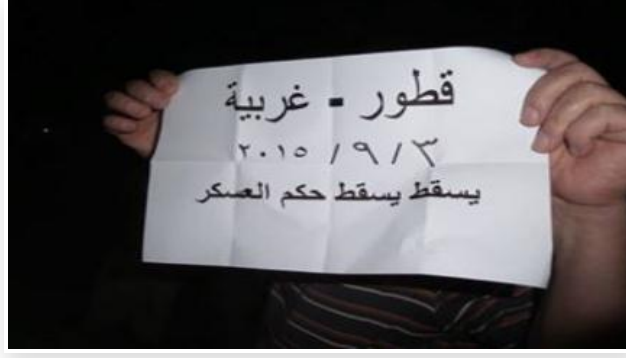 قطور - غربية
٣ / ٩ / ٢٠١٥
يسقط يسقط حكم العسكر